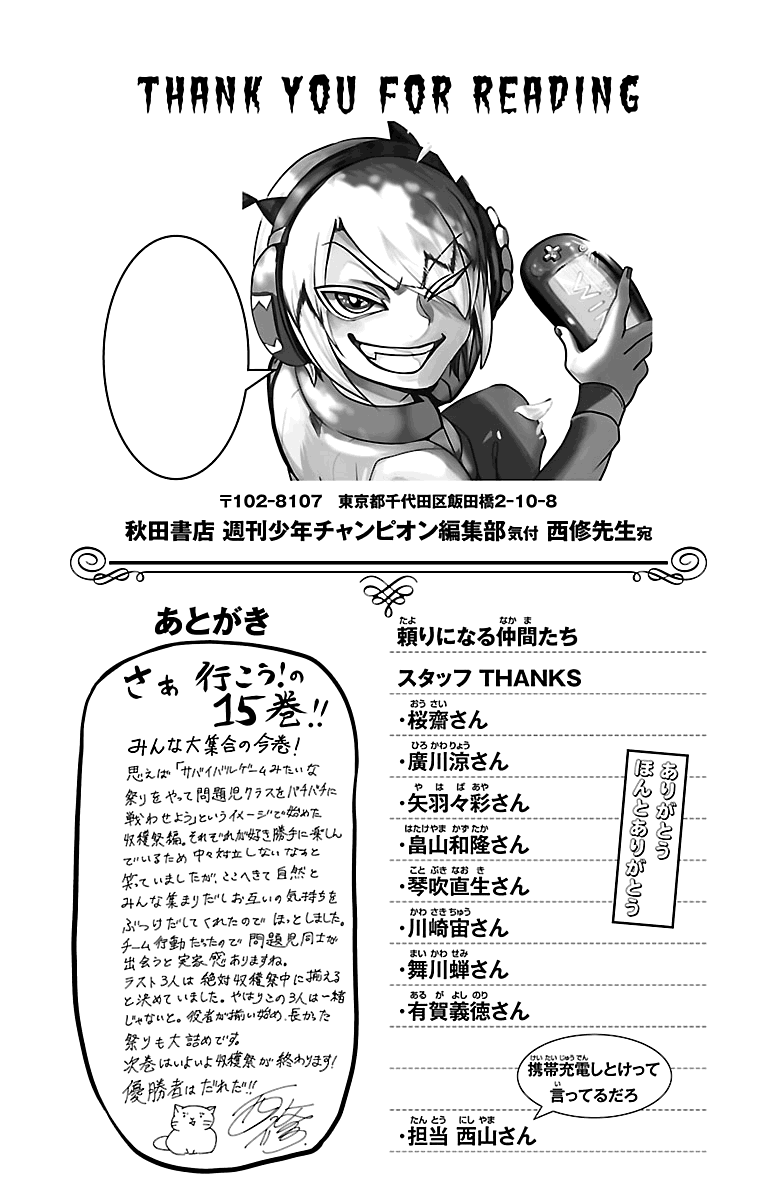 THANK YOU FOR READING
WIN
〒102-8107 東京都千代田区飯田橋2-10-8
秋田書店 週刊少年チャンピオン編集部気付 西修先生宛
あとがき
さぁ 行こう!の
15巻!!
みんな大集合の今巻!
思えば「サバイバルゲームみたいな
祭りをやって問題児クラスをバチバチに
戦わせよう」というイメージで始めた
収穫祭編。それぞれが好き勝手に楽しん
でいるため 中々対立しないなぁと
笑っていましたが、ここへきて 自然と
みんな集まりだしお互いの気持ちを
ぶつけだしてくれたので ほっとしました。
チーム行動だったので 問題児同士が
出会うと実家感ありますね。
ラスト3人は 絶対収穫祭中に揃える
と決めていました。やはりこの3人は一緒
じゃないと。役者が揃い始め、長かった
祭りも大詰めです。
次巻はいよいよ収穫祭が終わります!
優勝者はだれだ!!
西修
たよ なかま
頼りになる仲間たち
スタッフ THANKS
おうさい
・桜齋さん
ひろかわりょう
・廣川涼さん
やはばあや
・矢羽々彩さん
はたけやまかずたか
・畠山和隆さん
ことぶきなおき
・琴吹直生さん
かわさきちゅう
・川崎宙さん
まいかわせみ
・舞川蝉さん
あるがよしのり
・有賀義徳さん
ありがとう
ほんとありがとう
けいたいじゅうでん
携帯充電しとけって
い
言ってるだろ
たんとう にしやま
・担当 西山さん